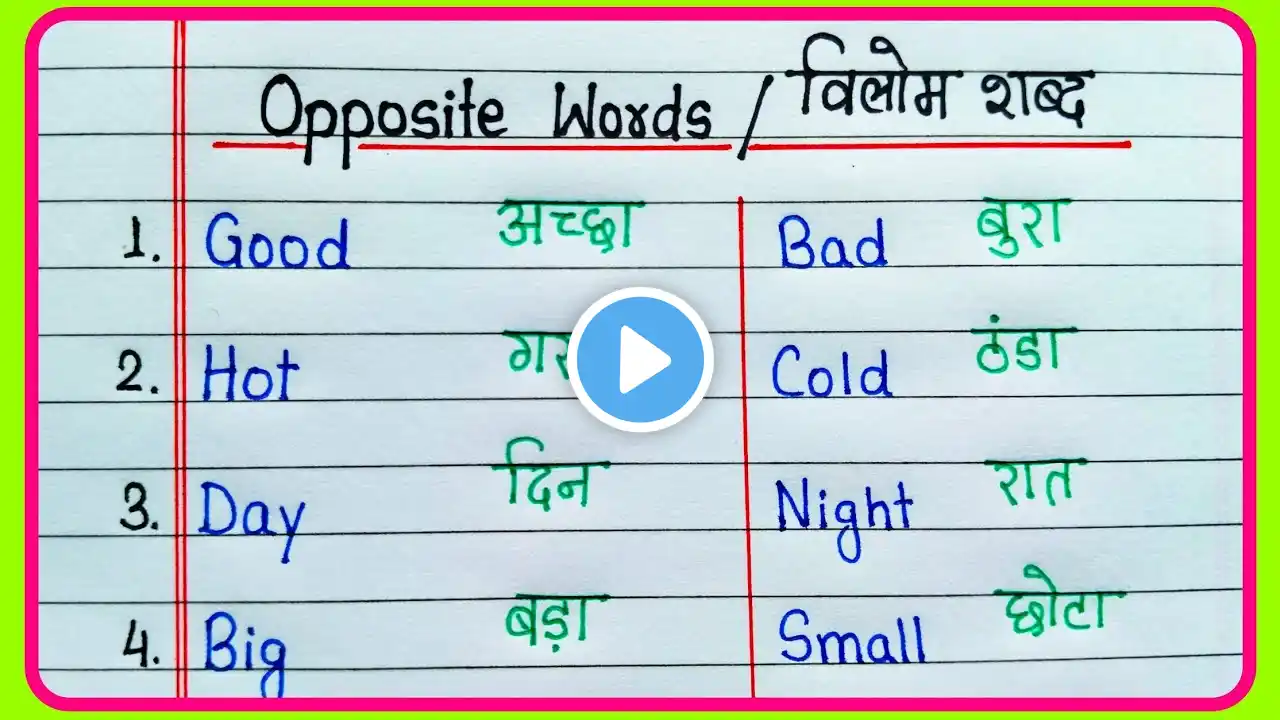 Opposite Words / विलोम शब्द
1. Good अच्छा Bad बुरा
2. Hot Cold ठंडा
3. Day दिन Night रात
4. Big बड़ा Small छोटा